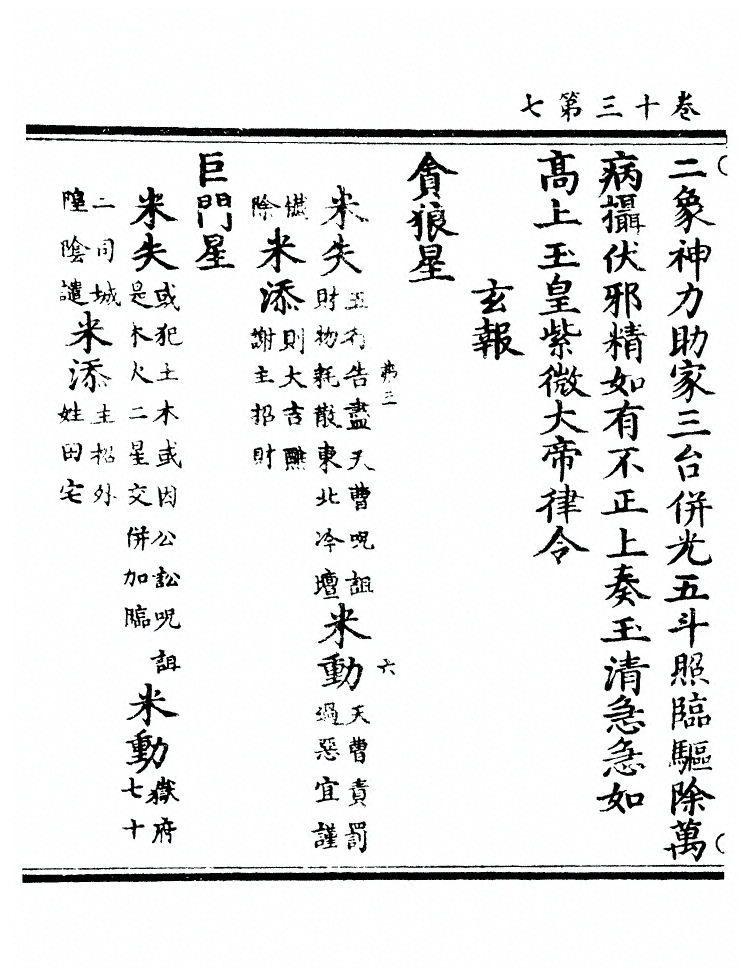 卷十三第七
二象神力助家三台併光五斗照臨驅除萬
病攝伏邪精如有不正上奏玉清急急如
高上玉皇紫微大帝律令
玄報
貪狼星
弟三 六
米失
五行告盡天曹呪詛
財物耗散東北冷壇
米動
天曹責罰
過惡宜謹
懺
除
米添
則大吉醮
謝主招財
巨門星
米失
或犯土木或因公訟呪詛
是木火二星交併加臨
米動
嶽府
七十
二司城
隍陰譴
米添
主招外
姓田宅